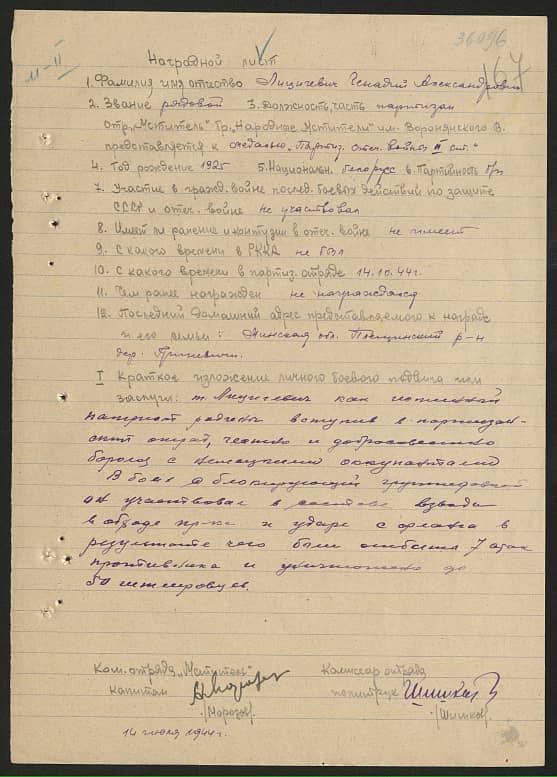 36096
167
11-II
Наградной лист
1. Фамилия имя отчество Лицкевич Генадий Александрович
2. Звание рядовой 3. Должность, часть партизан
отр. „Мститель" бр. „Народные Мстители" им. Воронянского В.
представляется к медалью „Партиз. отеч. войны II ст."
4. Год рождение 1925 5. Национальн. белорус 6. Партийность б/п
7. Участие в гражд. войне послед. боевых действий по защите
СССР и отеч. войне не участвовал
8. Имеет ли ранение и контузии в отеч. войне не имеет
9. С какого времени в РККА не был
10. С какого времени в партиз. отряде 14.10.44г.
11. Чем ранее награжден не награждался
12. Последний домашний адрес представляемого к награде
и его семьи: Минская обл. р-н
дер.
I Краткое изложение личного боевого подвига или
заслуги: т. Лицкевич как истинный
патриот родины вступив в партизан-
ский отряд, честно и добросовестно
боролся с немецкими оккупантами
В боях с блокирующей группировкой
он участвовал в составе взвода
в обходе пр-ка и ударе с фланга в
результате чего были отбиты 7 атак
противника и уничтожено до
50 гитлеровцев.
Ком. отряда „Мститель" Комиссар отряда
капитан политрук
/Морозов/ /Шишков/
14 июля 1944г.